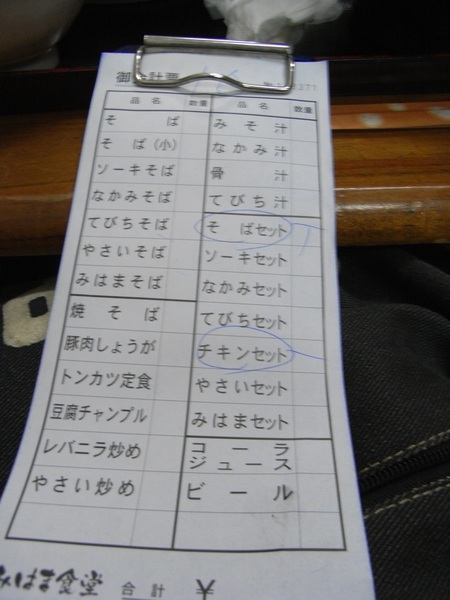 御会計票
品名 数量 品名 数量
そば
そば(小)
ソーキそば
なかみそば
てびちそば
やさいそば
みはまそば
焼そば
豚肉しょうが
トンカツ定食
豆腐チャンプル
レバニラ炒め
やさい炒め
みそ汁
なかみ汁
骨汁
てびち汁
そばセット
ソーキセット
なかみセット
てびちセット
チキンセット
やさいセット
みはまセット
コーラ
ジュース
ビール
みはま食堂 合計 ¥